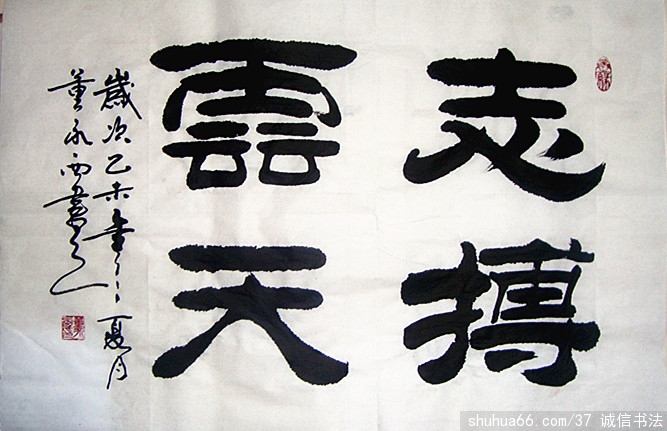 志搏
雲天
歲次乙未年之夏月
董永西書之
shuhua66.com/37 诚信书法